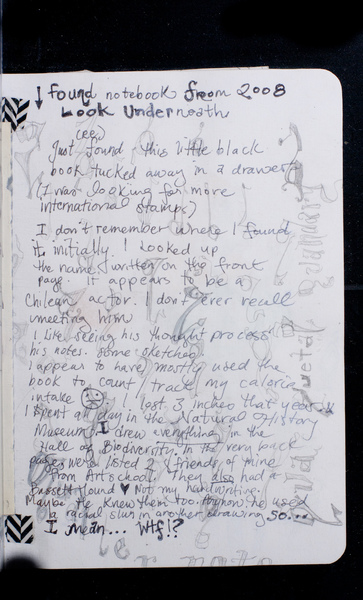 ↓ found notebook from 2008
Look Underneath
(eew)
Just found this little black
book tucked away in a drawer
(I was looking for more
international stamps)
I don't remember where I found
it initially. I looked up
the name written on the front
page. It appears to be a
Chilean actor. I don't ever recall
meeting him
I like seeing his thought process
his notes. Some sketches
I appears to have mostly used the
book to count / track my calorie
intake I lost 3 inches that year
I spent all day in the Natural History
Museum I drew everything in the
Hall of Biodiversity. In the very back
pages were listed 2 friends of mine
from Art school. They also had a
Bassett Hound ♥ Not my handwriting.
Maybe he knew them too. Anyhow he used
a racial slur in another drawing so...
I mean... Wtf!?